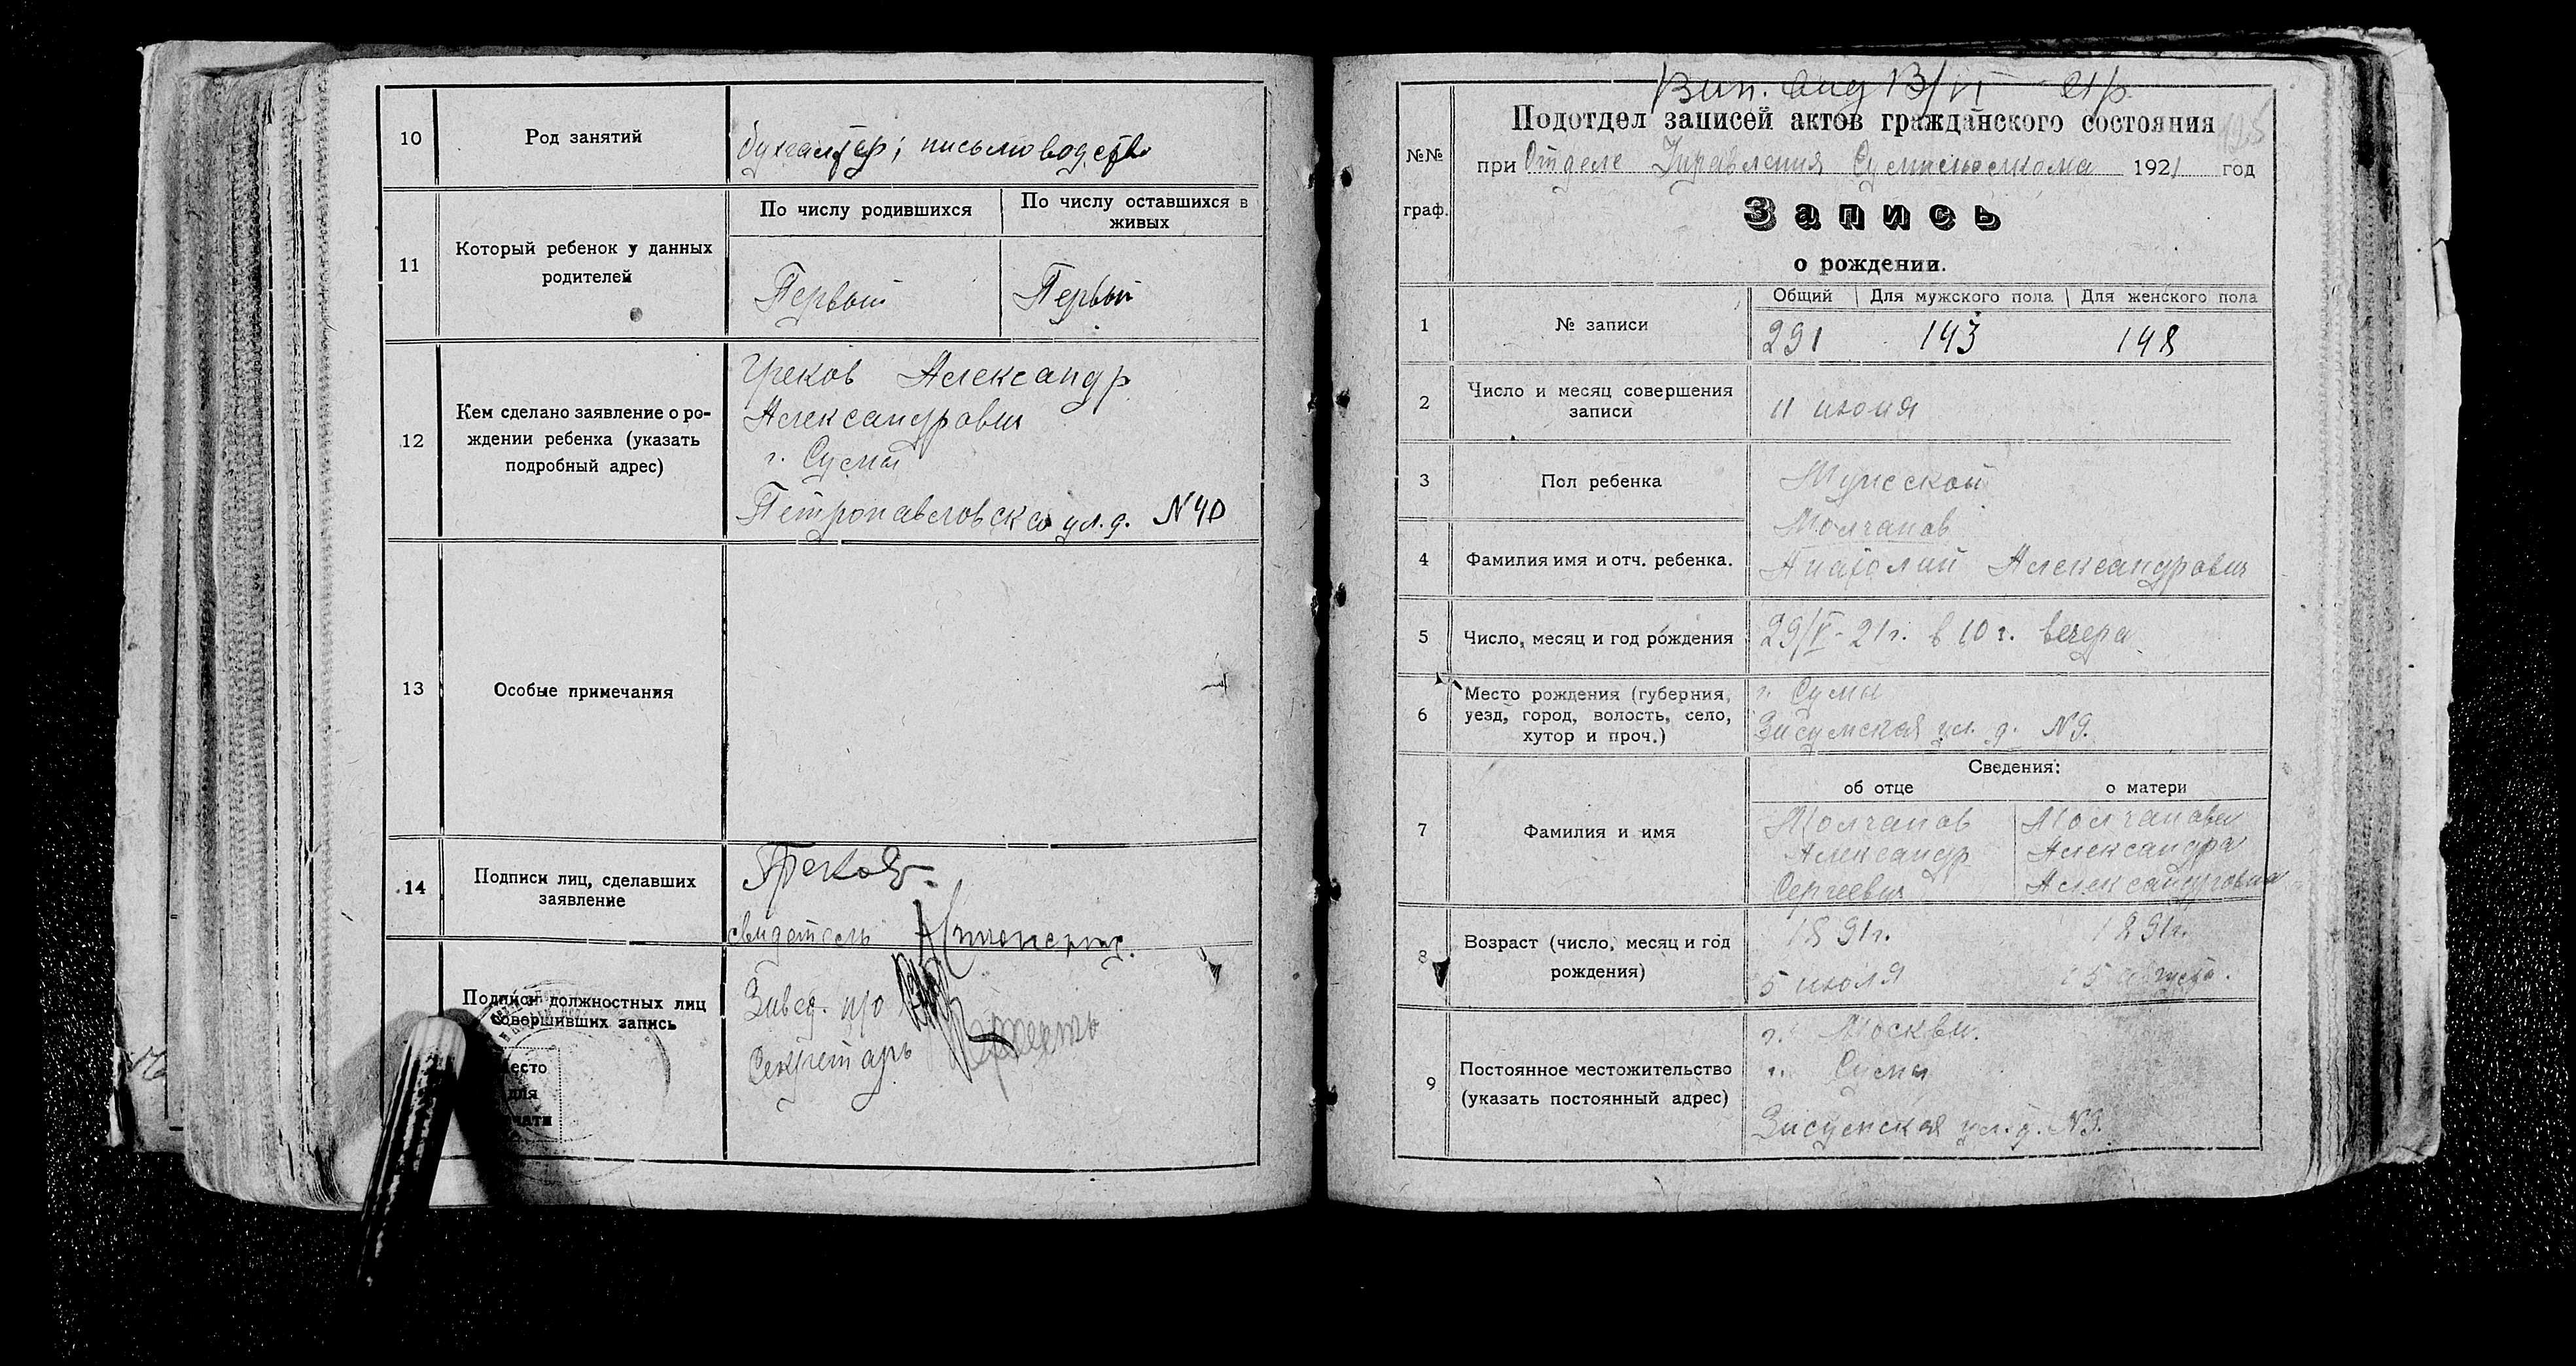 10
Род занятий
бухгалтер; письмоводство
11
Который ребенок у данных
родителей
По числу родившихся
По числу оставшихся в
живых
Первый
Первый
12
Кем сделано заявление о ро-
ждении ребенка (указать
подробный адрес)
Греков Александр
Александрович
г. Сумы
Петропавловская ул. д. N 40
13
Особые примечания
14
Подписи лиц, сделавших
заявление
Греков
свидетель
Подписи должностных лиц
совершивших запись
Место
для
печати
Завед. п/о
Секретарь
13/VI 21
Подотдел записей актов гражданского состояния
при Отделе Управления 1921 год
№№
граф.
Запись
о рождении.
1
№ записи
Общий
Для мужского пола
Для женского пола
291
143
148
2
Число и месяц совершения
записи
11 июня
3
Пол ребенка
Мужской
4
Фамилия имя и отч. ребенка.
Молчанов
Анатолий Александрович
5
Число, месяц и год рождения
29/V - 21 г. в 10 ч. вечера
6
Место рождения (губерния,
уезд, город, волость, село,
хутор и проч.)
г. Сумы
Засумская ул. д. N 9.
Сведения:
об отце
о матери
7
Фамилия и имя
Молчанов
Александр
Сергеевич
Молчанова
Александра
Александровна
8
Возраст (число, месяц и год
рождения)
1891 г.
5 июля
1891 г.
15 августа.
9
Постоянное местожительство
(указать постоянный адрес)
г. Москвы.
г. Сумы
Засумская ул. д. N 9.